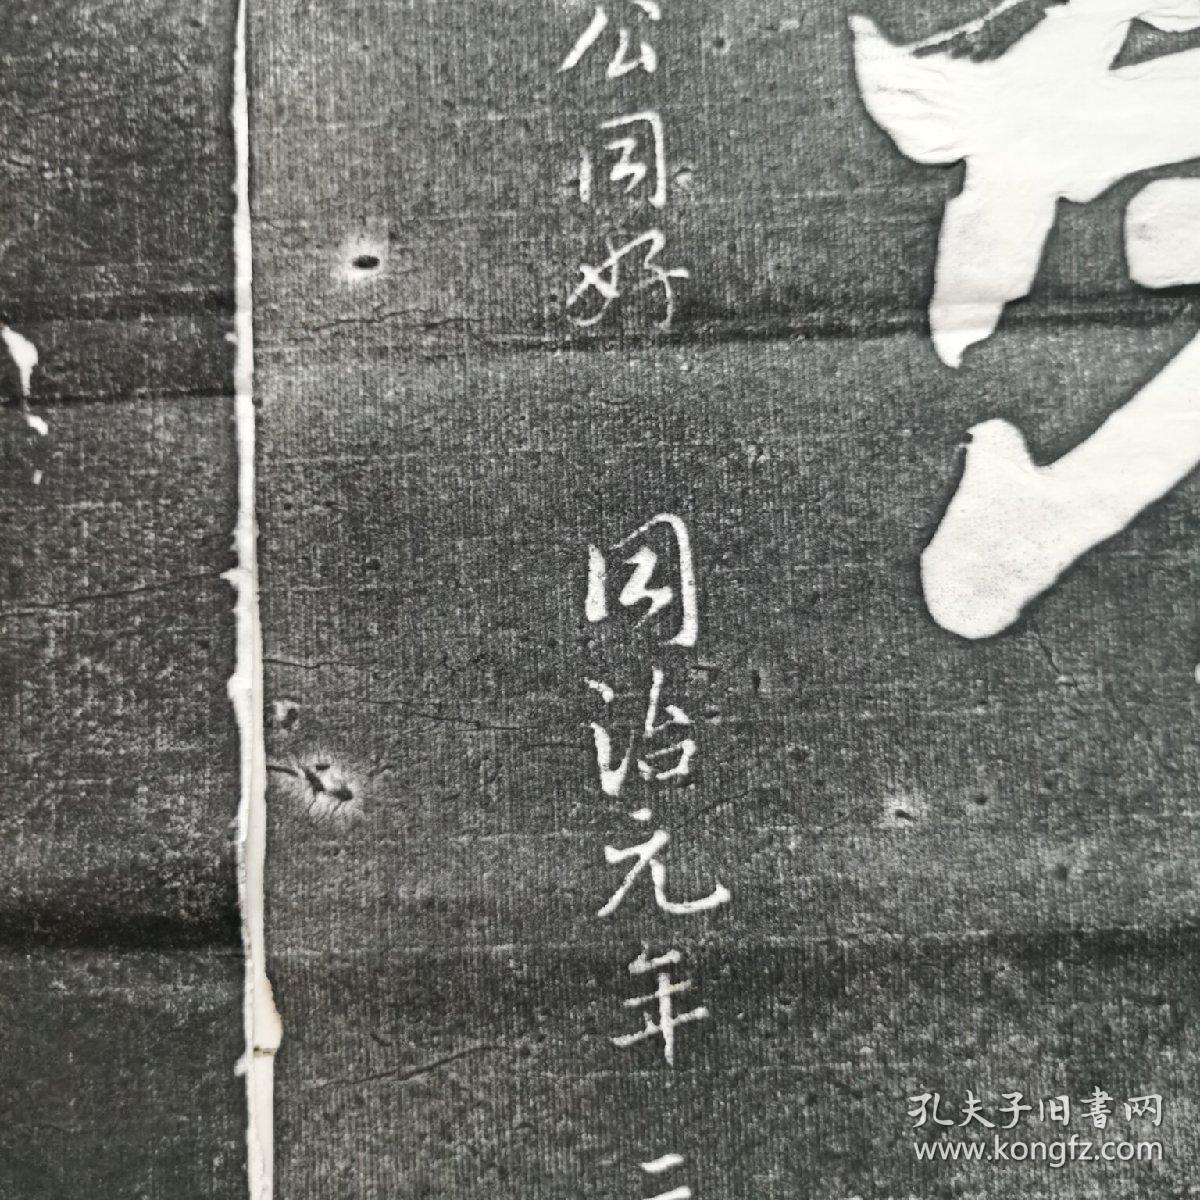 公同好
同治元年
孔夫子旧書网
www.kongfz.com